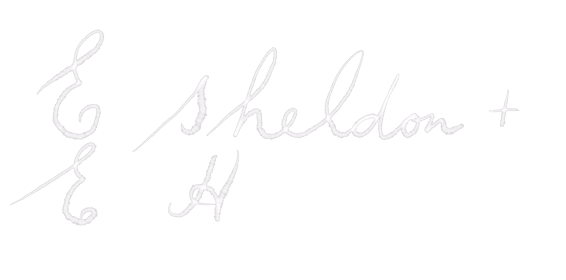 E Sheldon +
E H